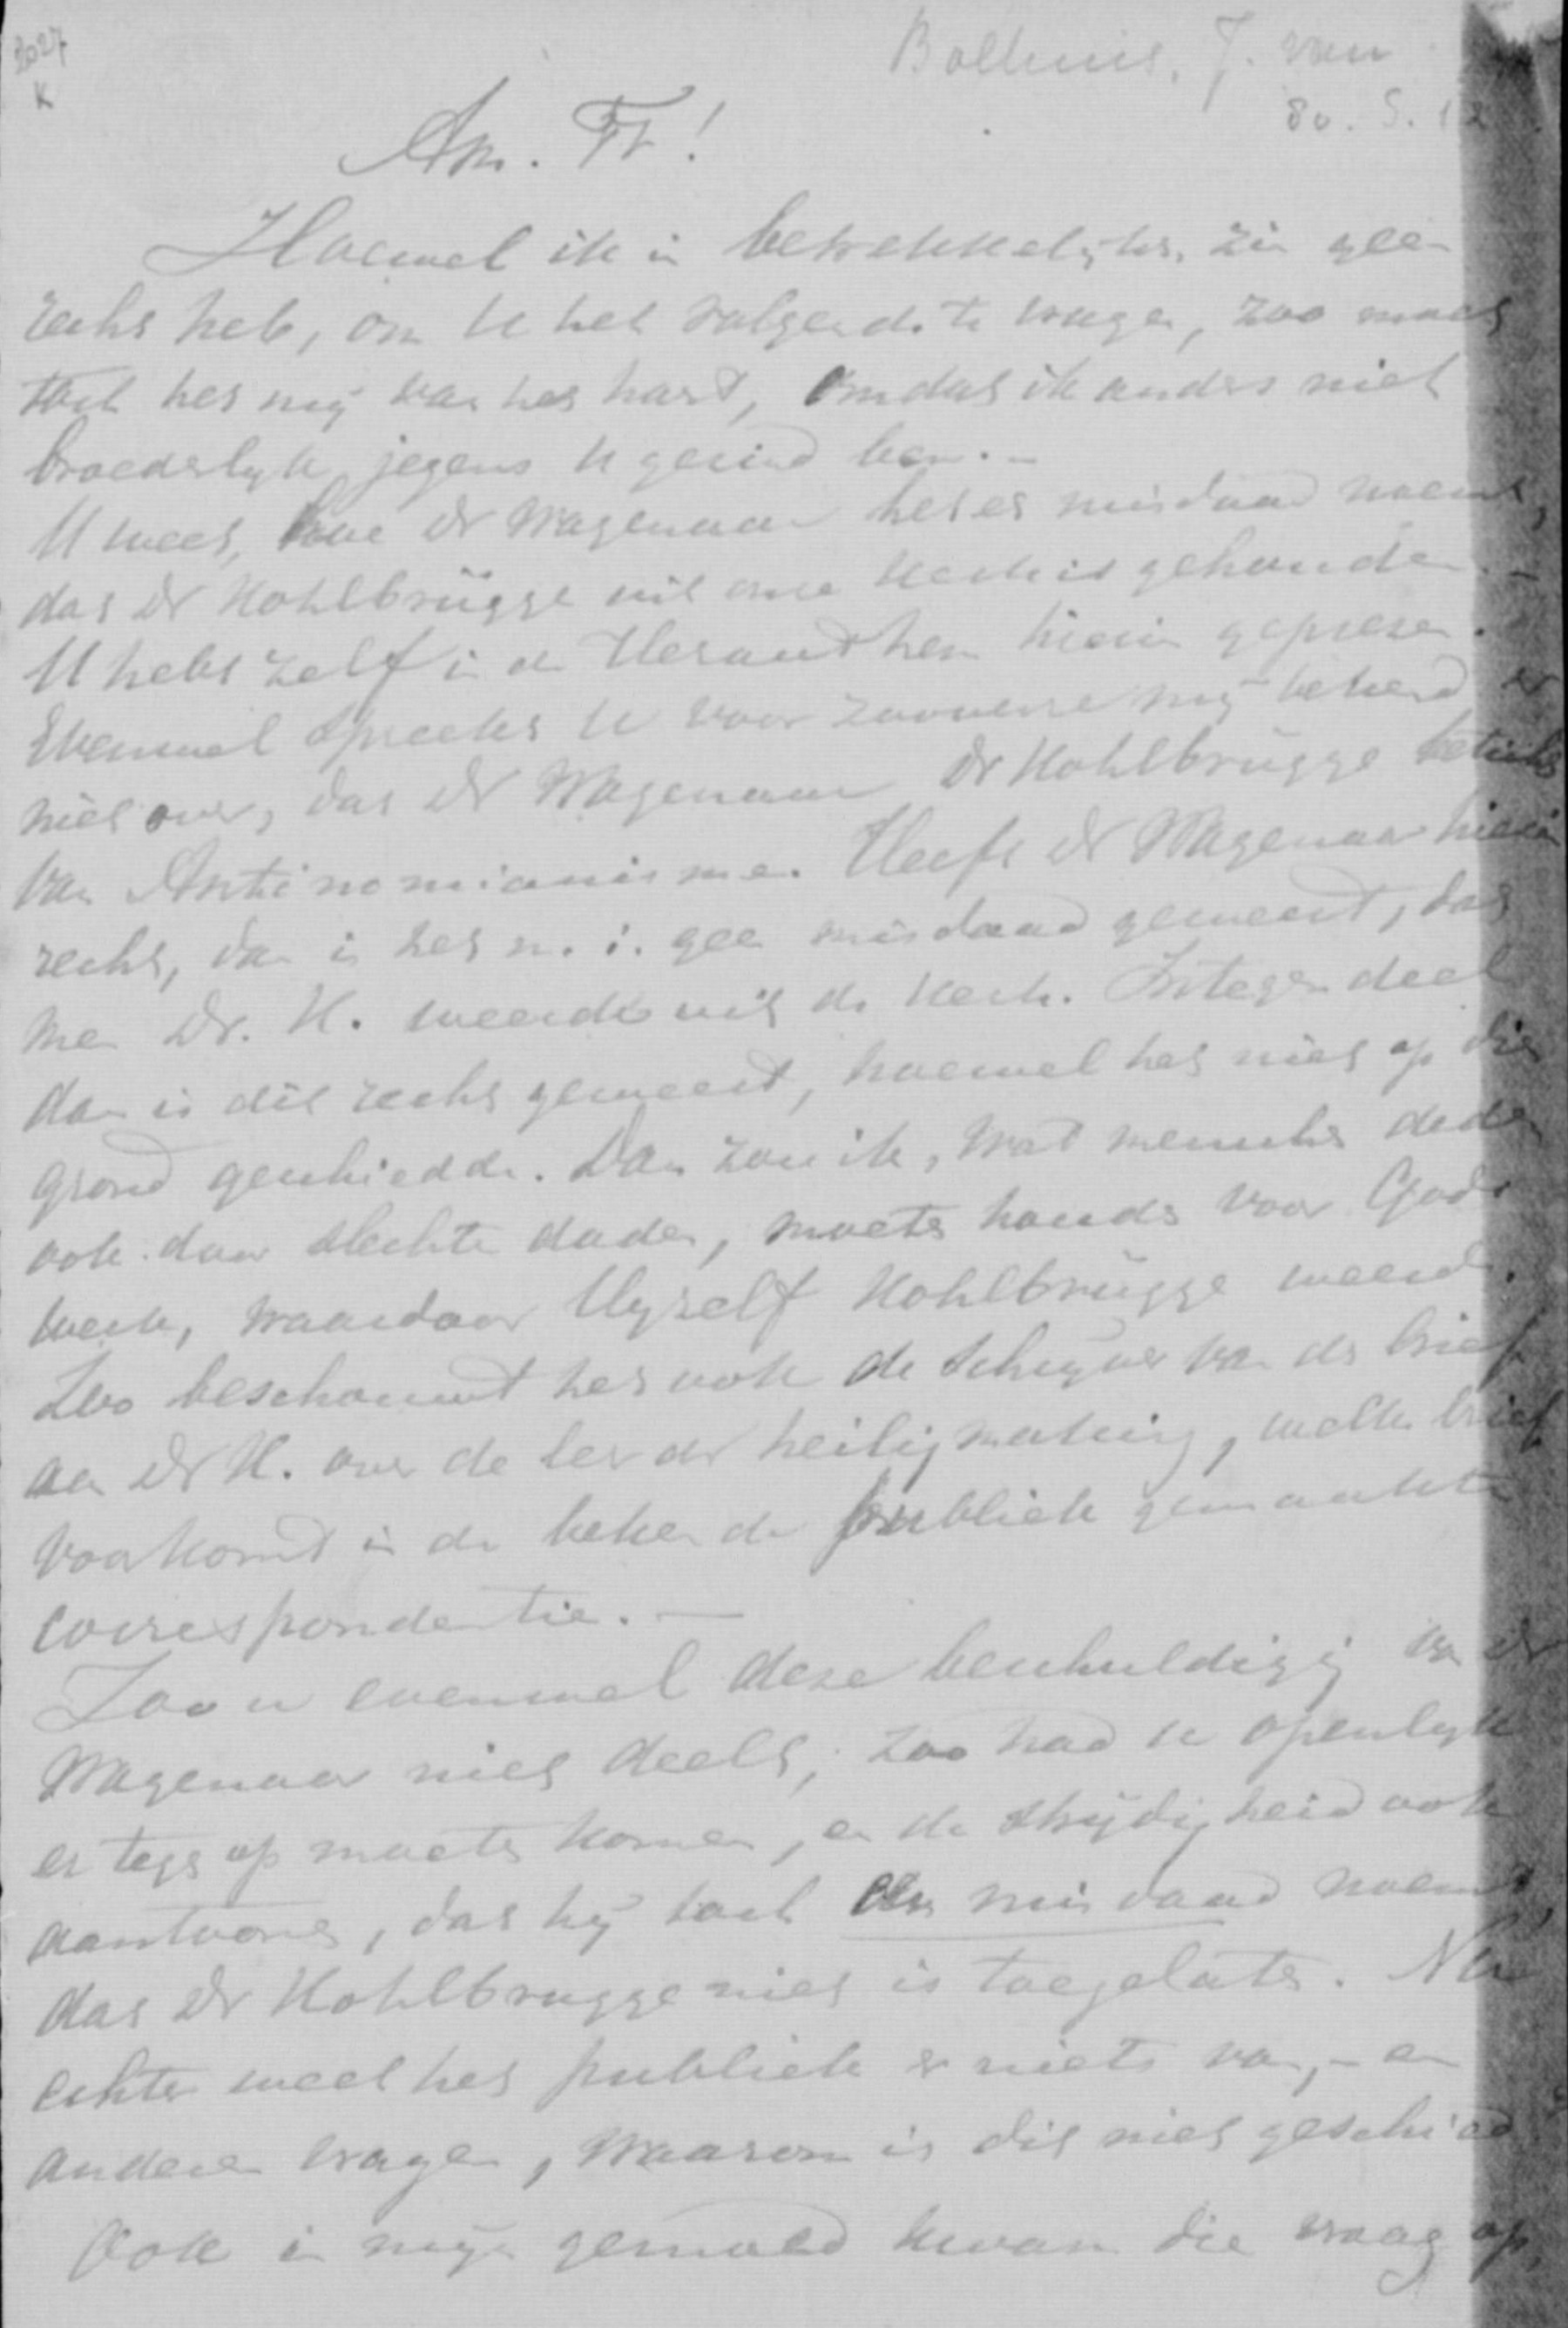 2027
K
Bolhuis, J. van
80. S. 12
Am. Fr!
Hoewel ik in betrekkelijke zin geen
recht heb, om U het volgende te vragen, zoo moet
toch het mij van het hart, omdat ik anders niet
broederlijk jegens U gezind ben. –
U weet, hoe Dr Wagenaar het een misdaad noemt,
dat Dr Kohlbrügge uit onze Kerk is gehouden. –
U hebt zelf in de Heraut hem hierin geprezen.
Evenwel spreekt U voor zooverre mij bekend er
niet over, dat Dr Wagenaar Dr Kohlbrügge beticht
van Antinomianisme. Heeft Dr Wagenaar hierin
recht, dan is het m. i. geen misdaad geweest, dat
men Dr. K. weerde uit de Kerk. Integendeel
dan is dit recht geweest, hoewel het niet op die
grond geschiedde. Dan zou ik, wat menschen deden
ook door slechte daden, moeten houden voor Gods
werk, waardoor Hijzelf Kohlbrügge weerde.
Zoo beschouwt het ook de schrijver van de brief
aan Dr K. over de leer der heiligmaking, welke brief
voorkomt in de bekende publiek gemaakte
correspondentie. –
Zoo u evenwel deze beschuldiging van Dr
Wagenaar niet deelt, zoo had U openlijk
er tegen op moeten komen, en de strijdigheid ook
aantoonen, dat hij toch een misdaad noemt,
dat Dr Kohlbrugge niet is toegelaten. Nu
echter weet het publiek er niets van, – en
anderen vragen, waarom is dit niet geschied
Ook in mijn gemoed kwam die vraag op,